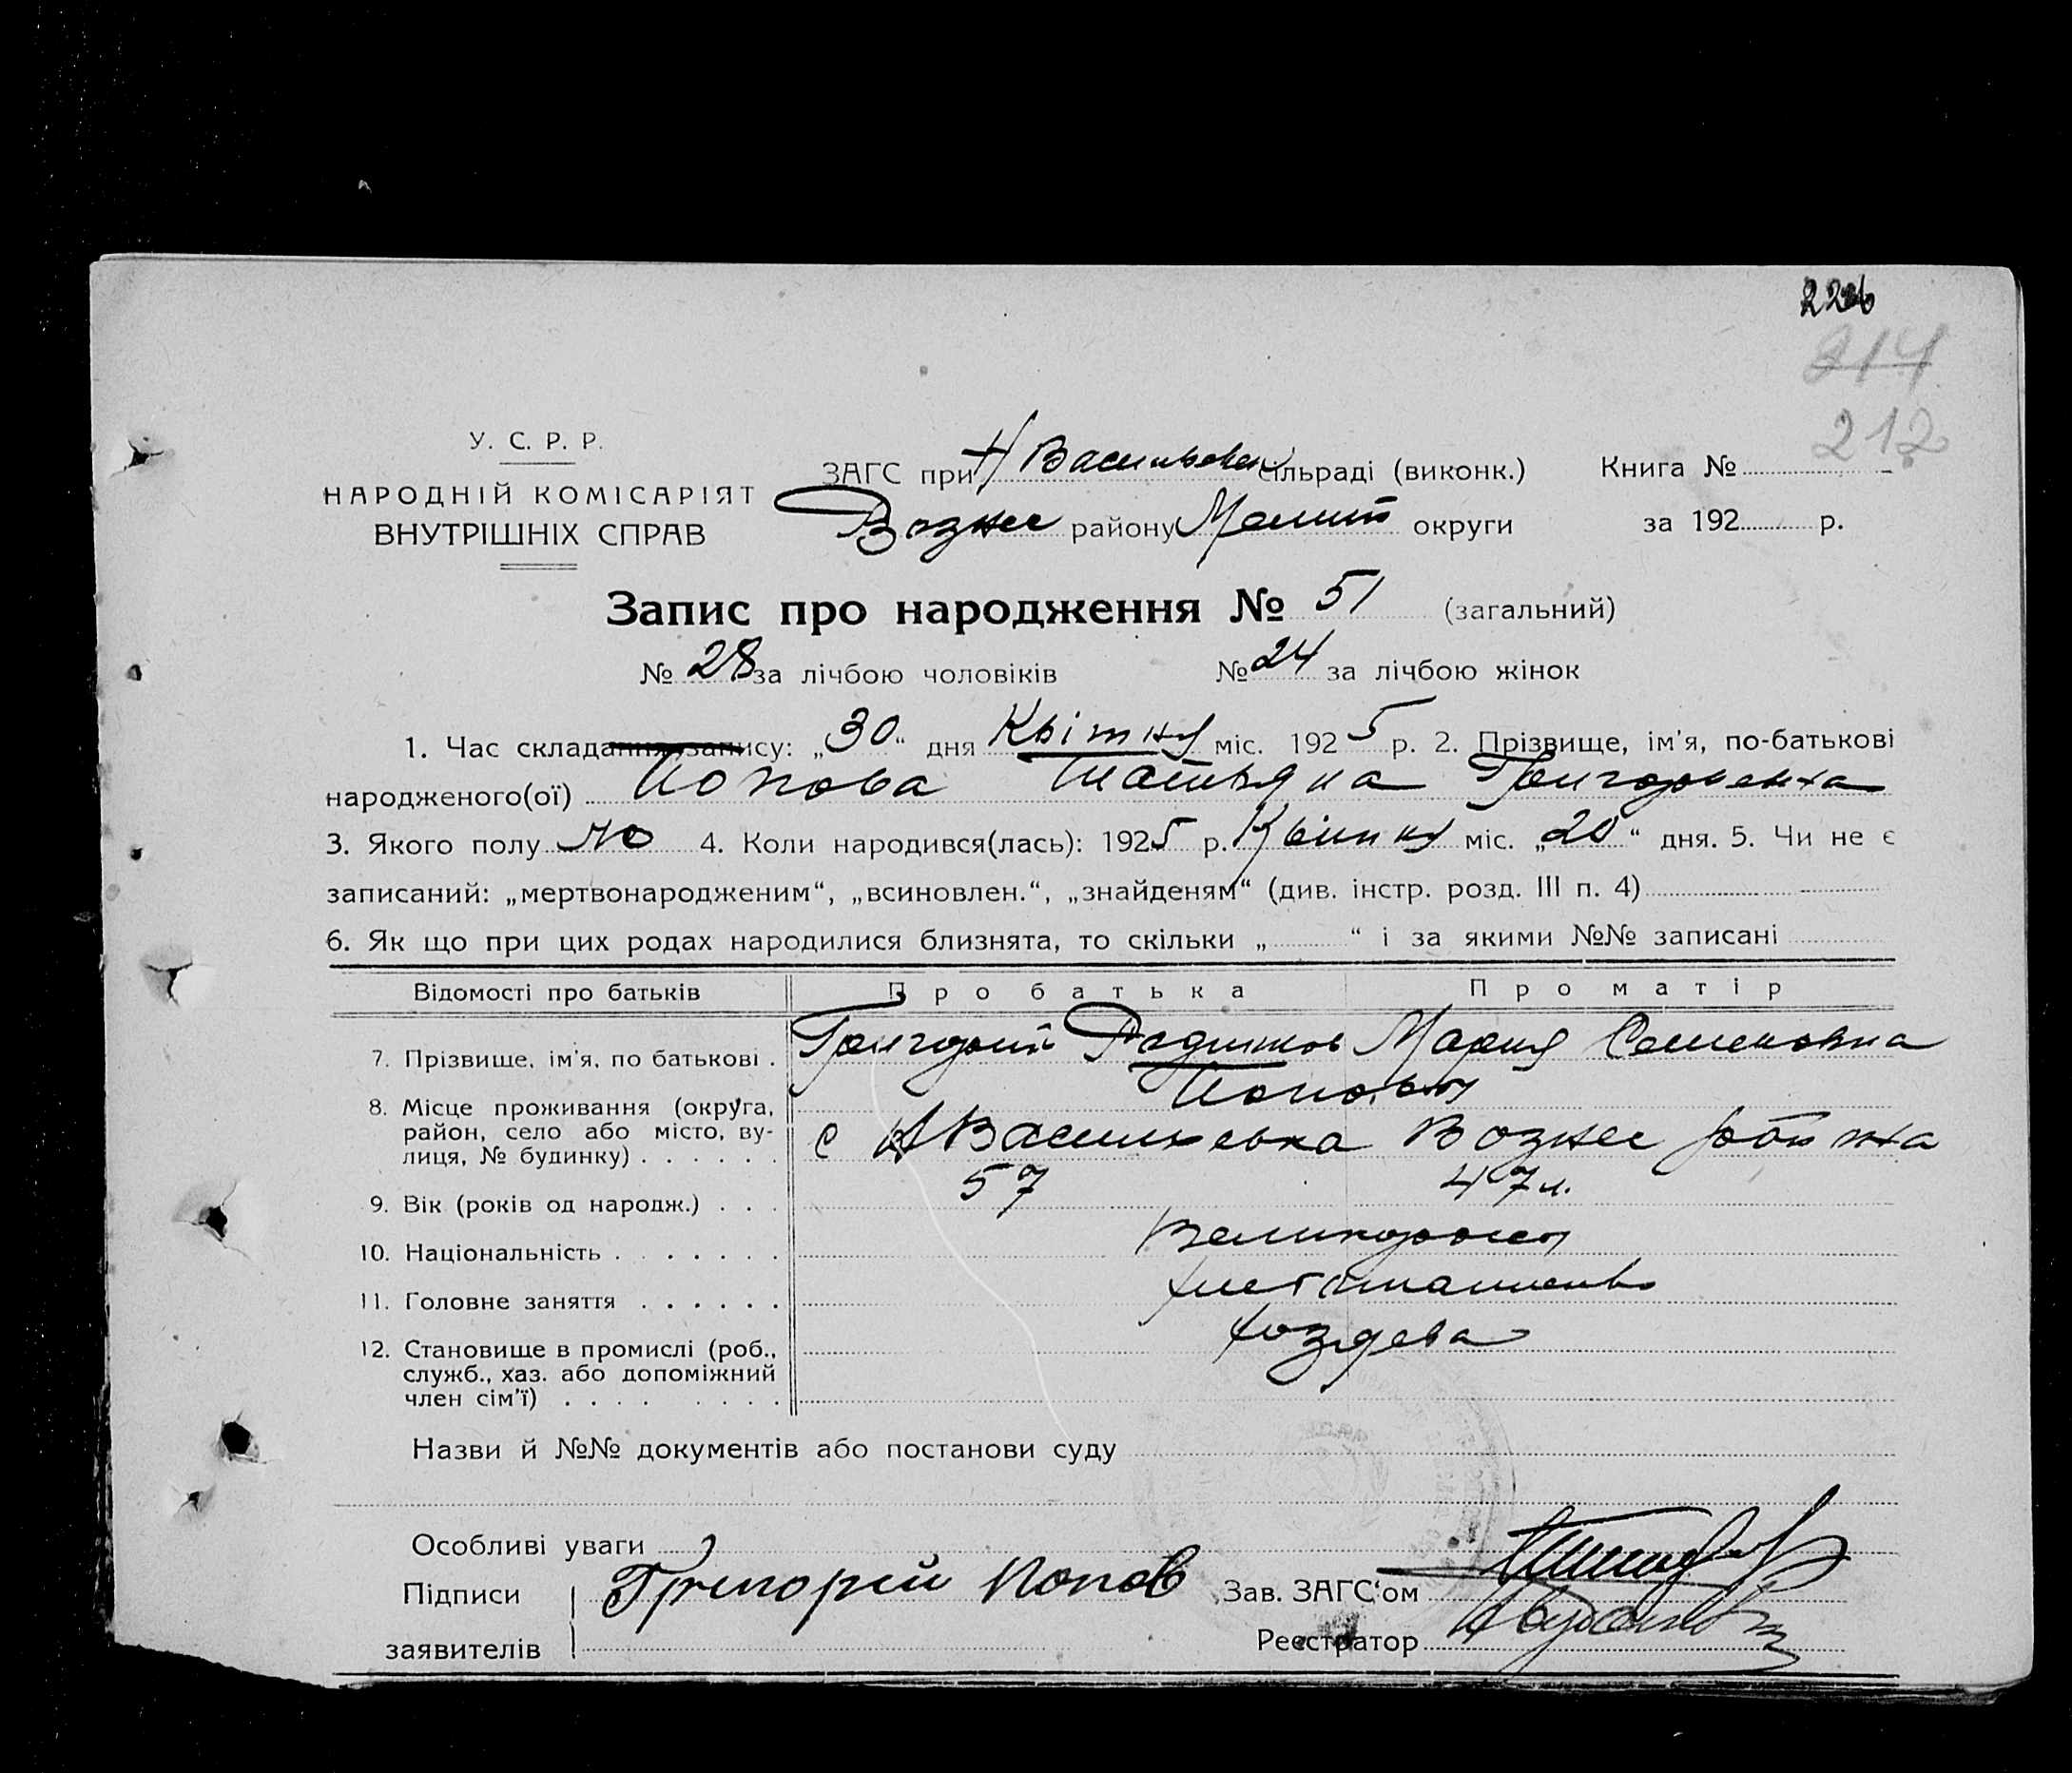 226
214
212
У. С. Р. Р.
НАРОДНІЙ КОМІСАРІЯТ
ВНУТРІШНІХ СПРАВ
ЗАГС при Н Васильевск сільраді (виконк.) Книга №
Вознес району Мелит округи за 192 р.
Запис про народження № 51 (загальний)
№ 28 за лічбою чоловіків № 24 за лічбою жінок
1. Час складання запису: „30“ дня Квітня міс. 1925 р. 2. Прізвище, ім'я, по-батькові
народженого(ої) Попова Татьяна Григорьевна
3. Якого полу Ж 4. Коли народився(лась): 1925 р. Квітня міс. „20“ дня. 5. Чи не є
записаний: „мертвонародженим“, „всиновлен.“, „знайденям“ (див. інстр. розд. III п. 4)
6. Як що при цих родах народилися близнята, то скільки „ “ і за якими №№ записані
Відомості про батьків Про батька Про матір
7. Прізвище, ім'я, по батькові . Григорий Мария Семеновна
Поповы
8. Місце проживання (округа,
район, село або місто, ву-
лиця, № будинку) . . . . . . с Н Васильевка Вознес
9. Вік (років од народж.) . . . 57 47 л.
10. Національність . . . . . . . Великоросы
11. Головне заняття . . . . . . хлебопашество
12. Становище в промислі (роб.,
служб., хаз. або допоміжний
член сім'ї) . . . . . . . . хозяева
Назви й №№ документів або постанови суду
Особливі уваги
Підписи
заявителів
Григорій Попов
Зав. ЗАГС'ом
Реєстратор